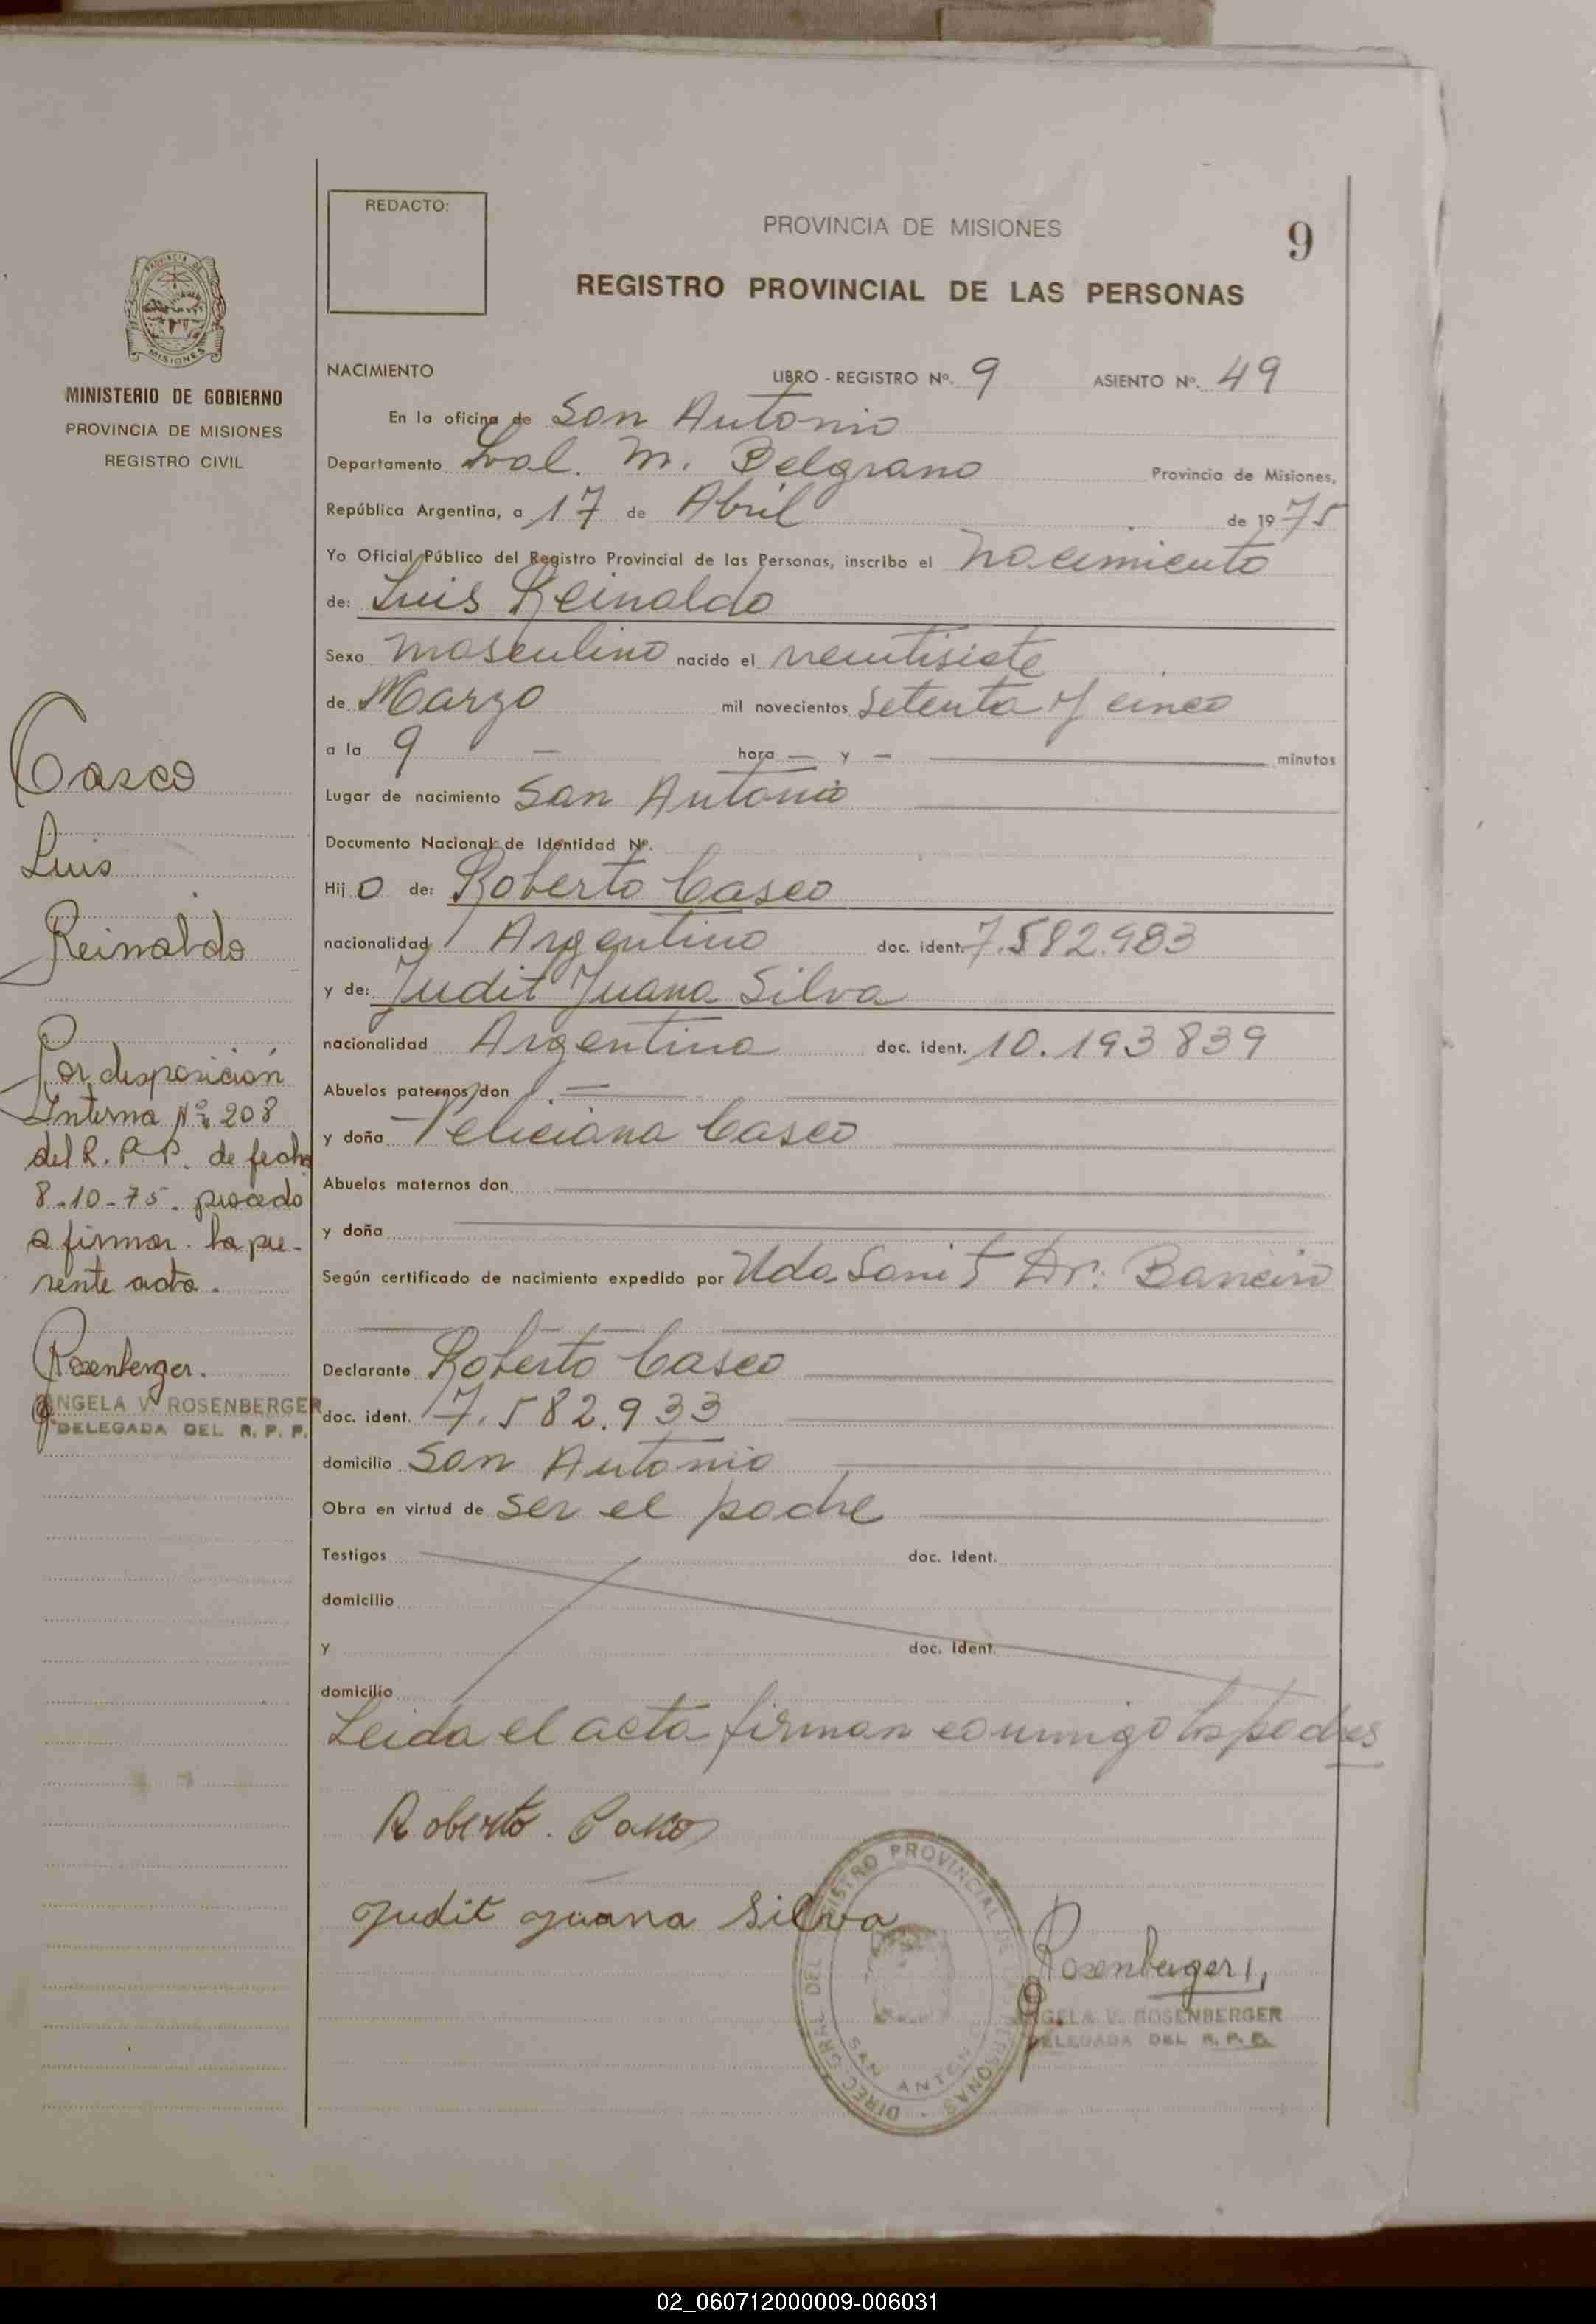 REDACTO:
PROVINCIA DE MISIONES
9
REGISTRO PROVINCIAL DE LAS PERSONAS
PROVINCIA DE
MISIONES
MINISTERIO DE GOBIERNO
PROVINCIA DE MISIONES
REGISTRO CIVIL
NACIMIENTO LIBRO - REGISTRO Nº. 9 ASIENTO Nº. 49
En la oficina de San Antonio
Departamento Gral. M. Belgrano Provincia de Misiones,
República Argentina, a 17 de Abril de 1975
Yo Oficial Público del Registro Provincial de las Personas, inscribo el nacimiento
de: Luis Reinaldo
Sexo masculino nacido el veintisiete
de Marzo mil novecientos setenta y cinco
a la 9 — hora — y — minutos
Lugar de nacimiento San Antonio
Documento Nacional de Identidad Nº.
Hijo de: Roberto Casco
nacionalidad Argentino doc. ident. 7.582.983
y de: Judit Juana Silva
nacionalidad Argentina doc. ident. 10.193839
Abuelos paternos don —
y doña Feliciana Casco
Abuelos maternos don
y doña
Según certificado de nacimiento expedido por Uda Sanit Dr.
Declarante Roberto Casco
doc. ident. 7.582.933
domicilio San Antonio
Obra en virtud de ser el padre
Testigos doc. ident.
domicilio
y doc. ident.
domicilio
Leida el acta firman conmigo los padres
Roberto. Casco
Judit Juana Silva
Rosenberger
ANGELA V. ROSENBERGER
DELEGADA DEL R. P. P.
DIREC. GRAL. DEL REGISTRO PROVINCIAL DE LAS PERSONAS -
SAN ANTONIO
Casco
Luis
Reinaldo
Por disposición
Interna Nº 208
del R. P. P. de fecha
8-10-75. procedo
a firmar la pre-
sente acta.
Rosenberger.
ANGELA V. ROSENBERGER
DELEGADA DEL R. P. P.
02_060712000009-006031